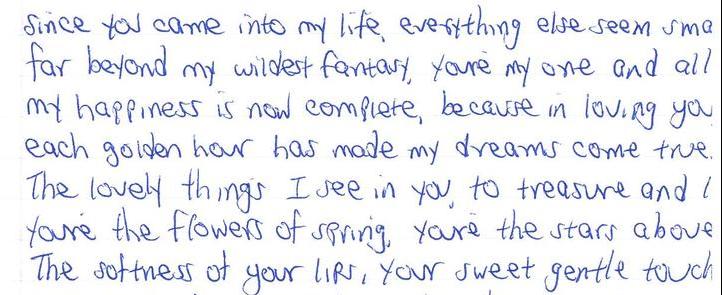 Since you came into my life, everything else seem sma
far beyond my wildest fantasy, youre my one and all
my happiness is now complete, because in loving you
each golden hour has made my dreams come true.
The lovely things I see in you, to treasure and l
youre the flowers of spring, youre the stars above
The softness of your lips, your sweet gentle touch